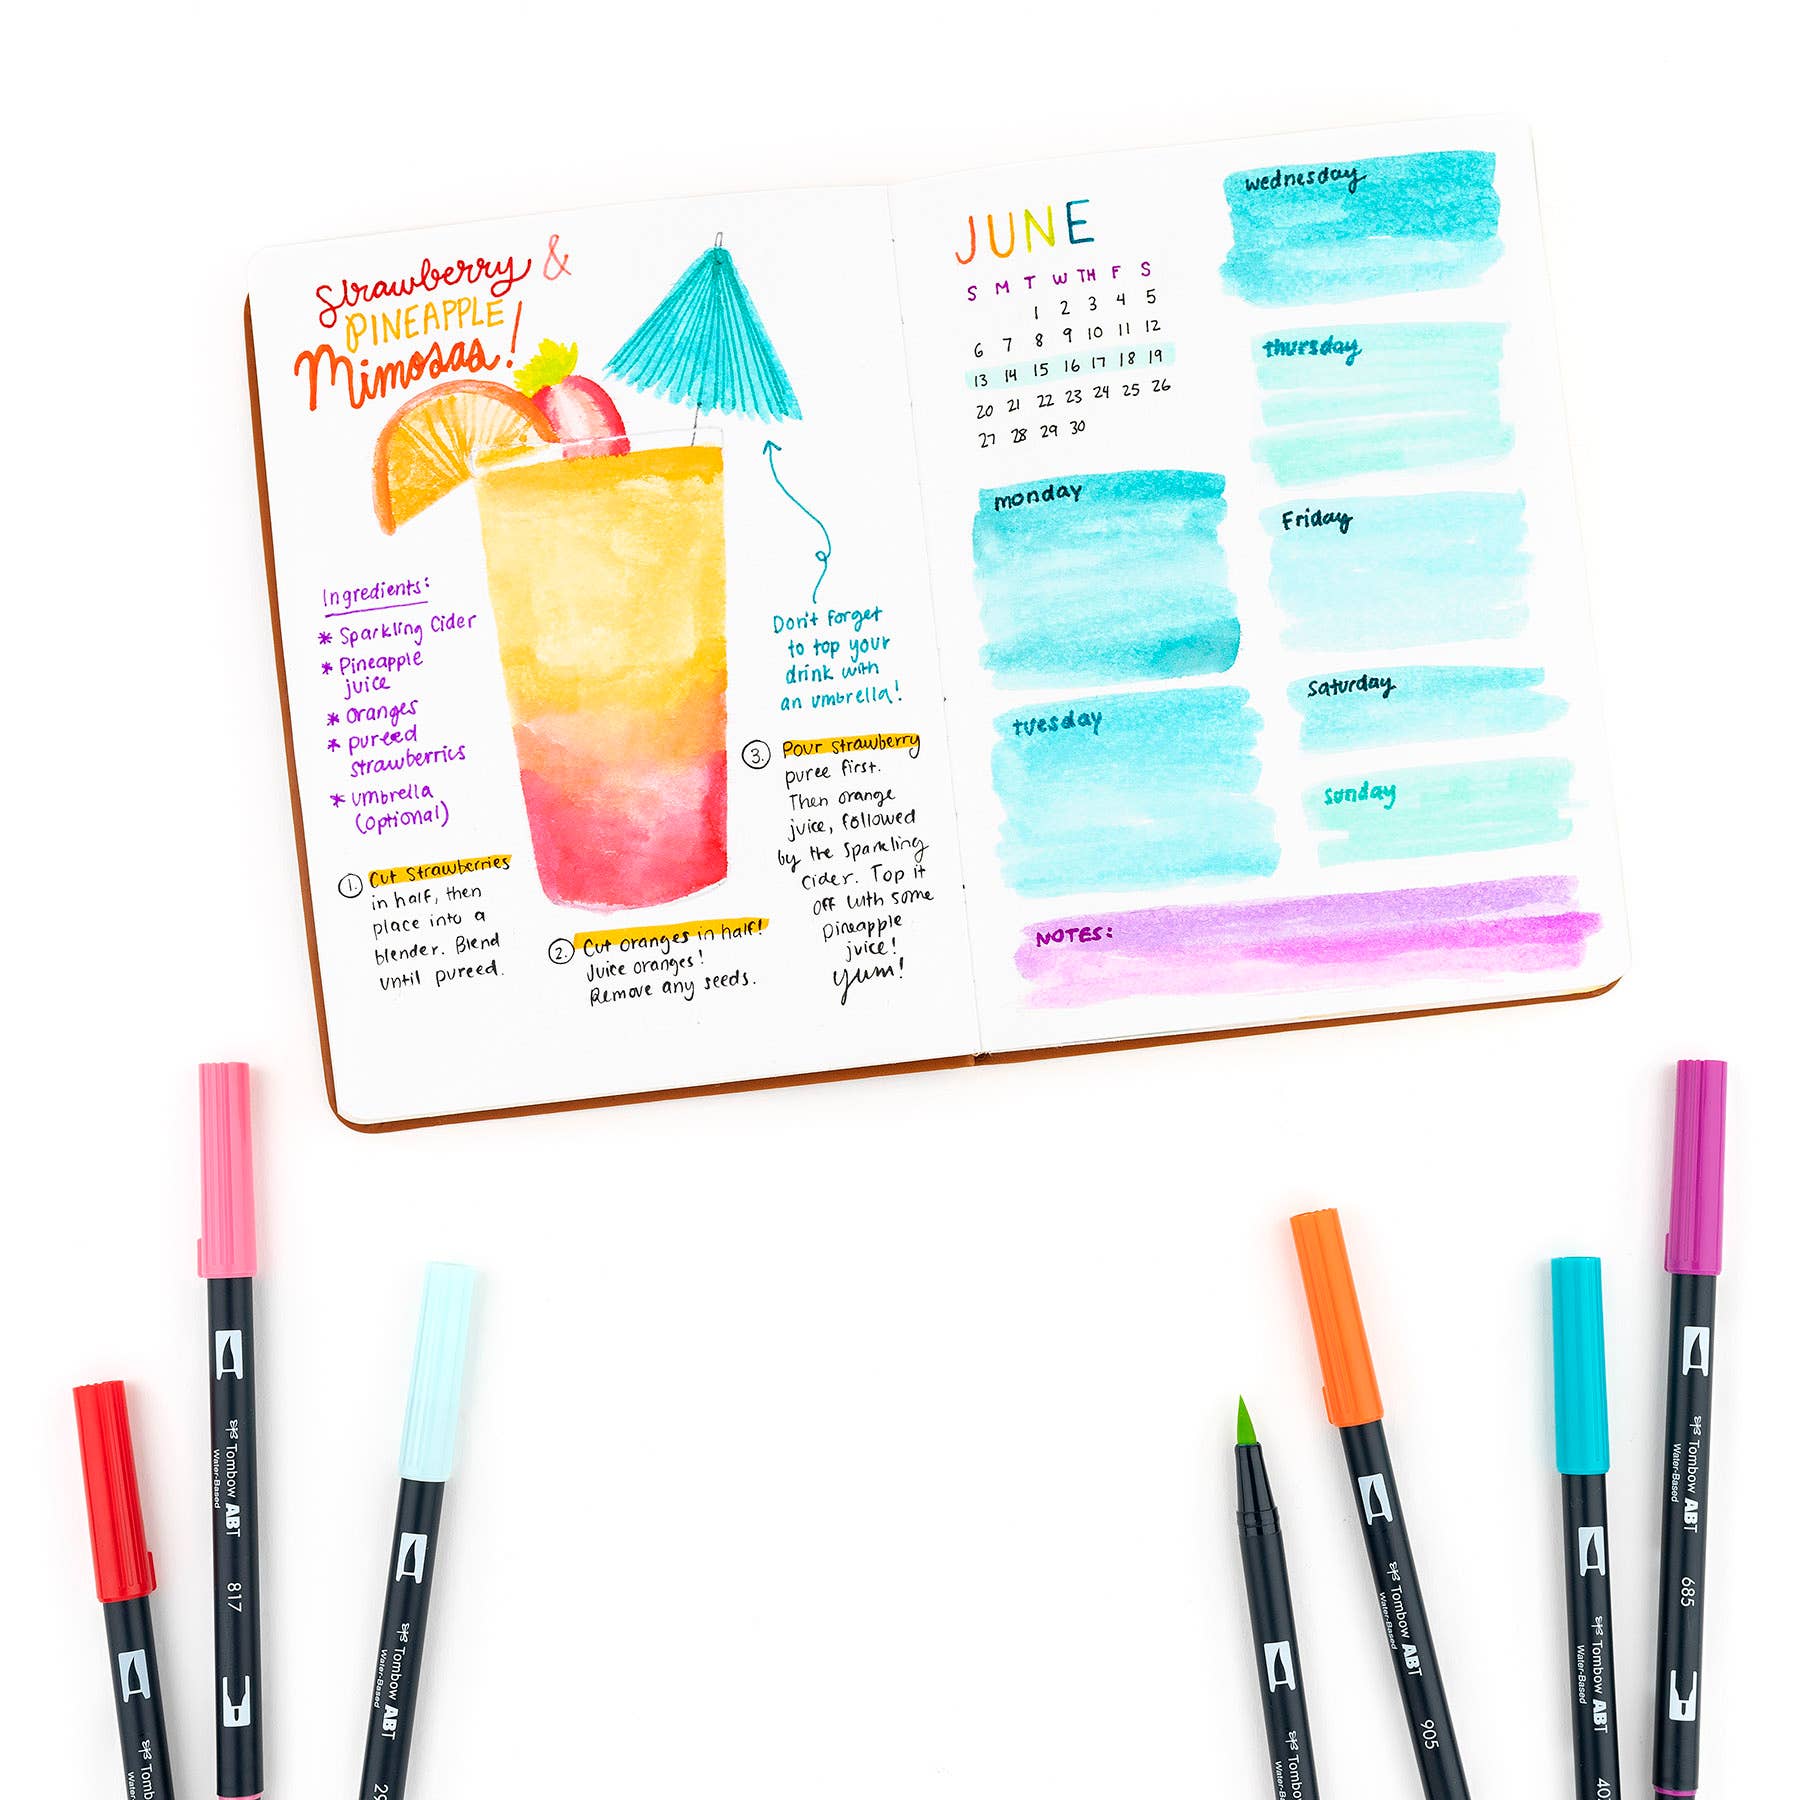 Strawberry &
PINEAPPLE
Mimosas!
Ingredients:
* Sparkling Cider
* Pineapple
juice
* oranges
* pureed
strawberries
* umbrella
(optional)
Don't forget
to top your
drink with
an umbrella!
1. Cut Strawberries
in half, then
place into a
blender. Blend
until pureed.
2. Cut oranges in half!
Juice oranges!
Remove any seeds.
3. Pour strawberry
puree first.
Then orange
juice, followed
by the sparkling
cider. Top it
off with some
pineapple
juice!
yum!
JUNE
S M T W TH F S
1 2 3 4 5
6 7 8 9 10 11 12
13 14 15 16 17 18 19
20 21 22 23 24 25 26
27 28 29 30
monday
tuesday
wednesday
thursday
Friday
saturday
sunday
NOTES:
Tombow ABT
Water-Based
817
Tombow
Tombow ABT
Water-Based
Tombow
Tombow ABT
Water-Based
905
Tombow ABT
Water-Based
Tombow ABT
Water-Based
685